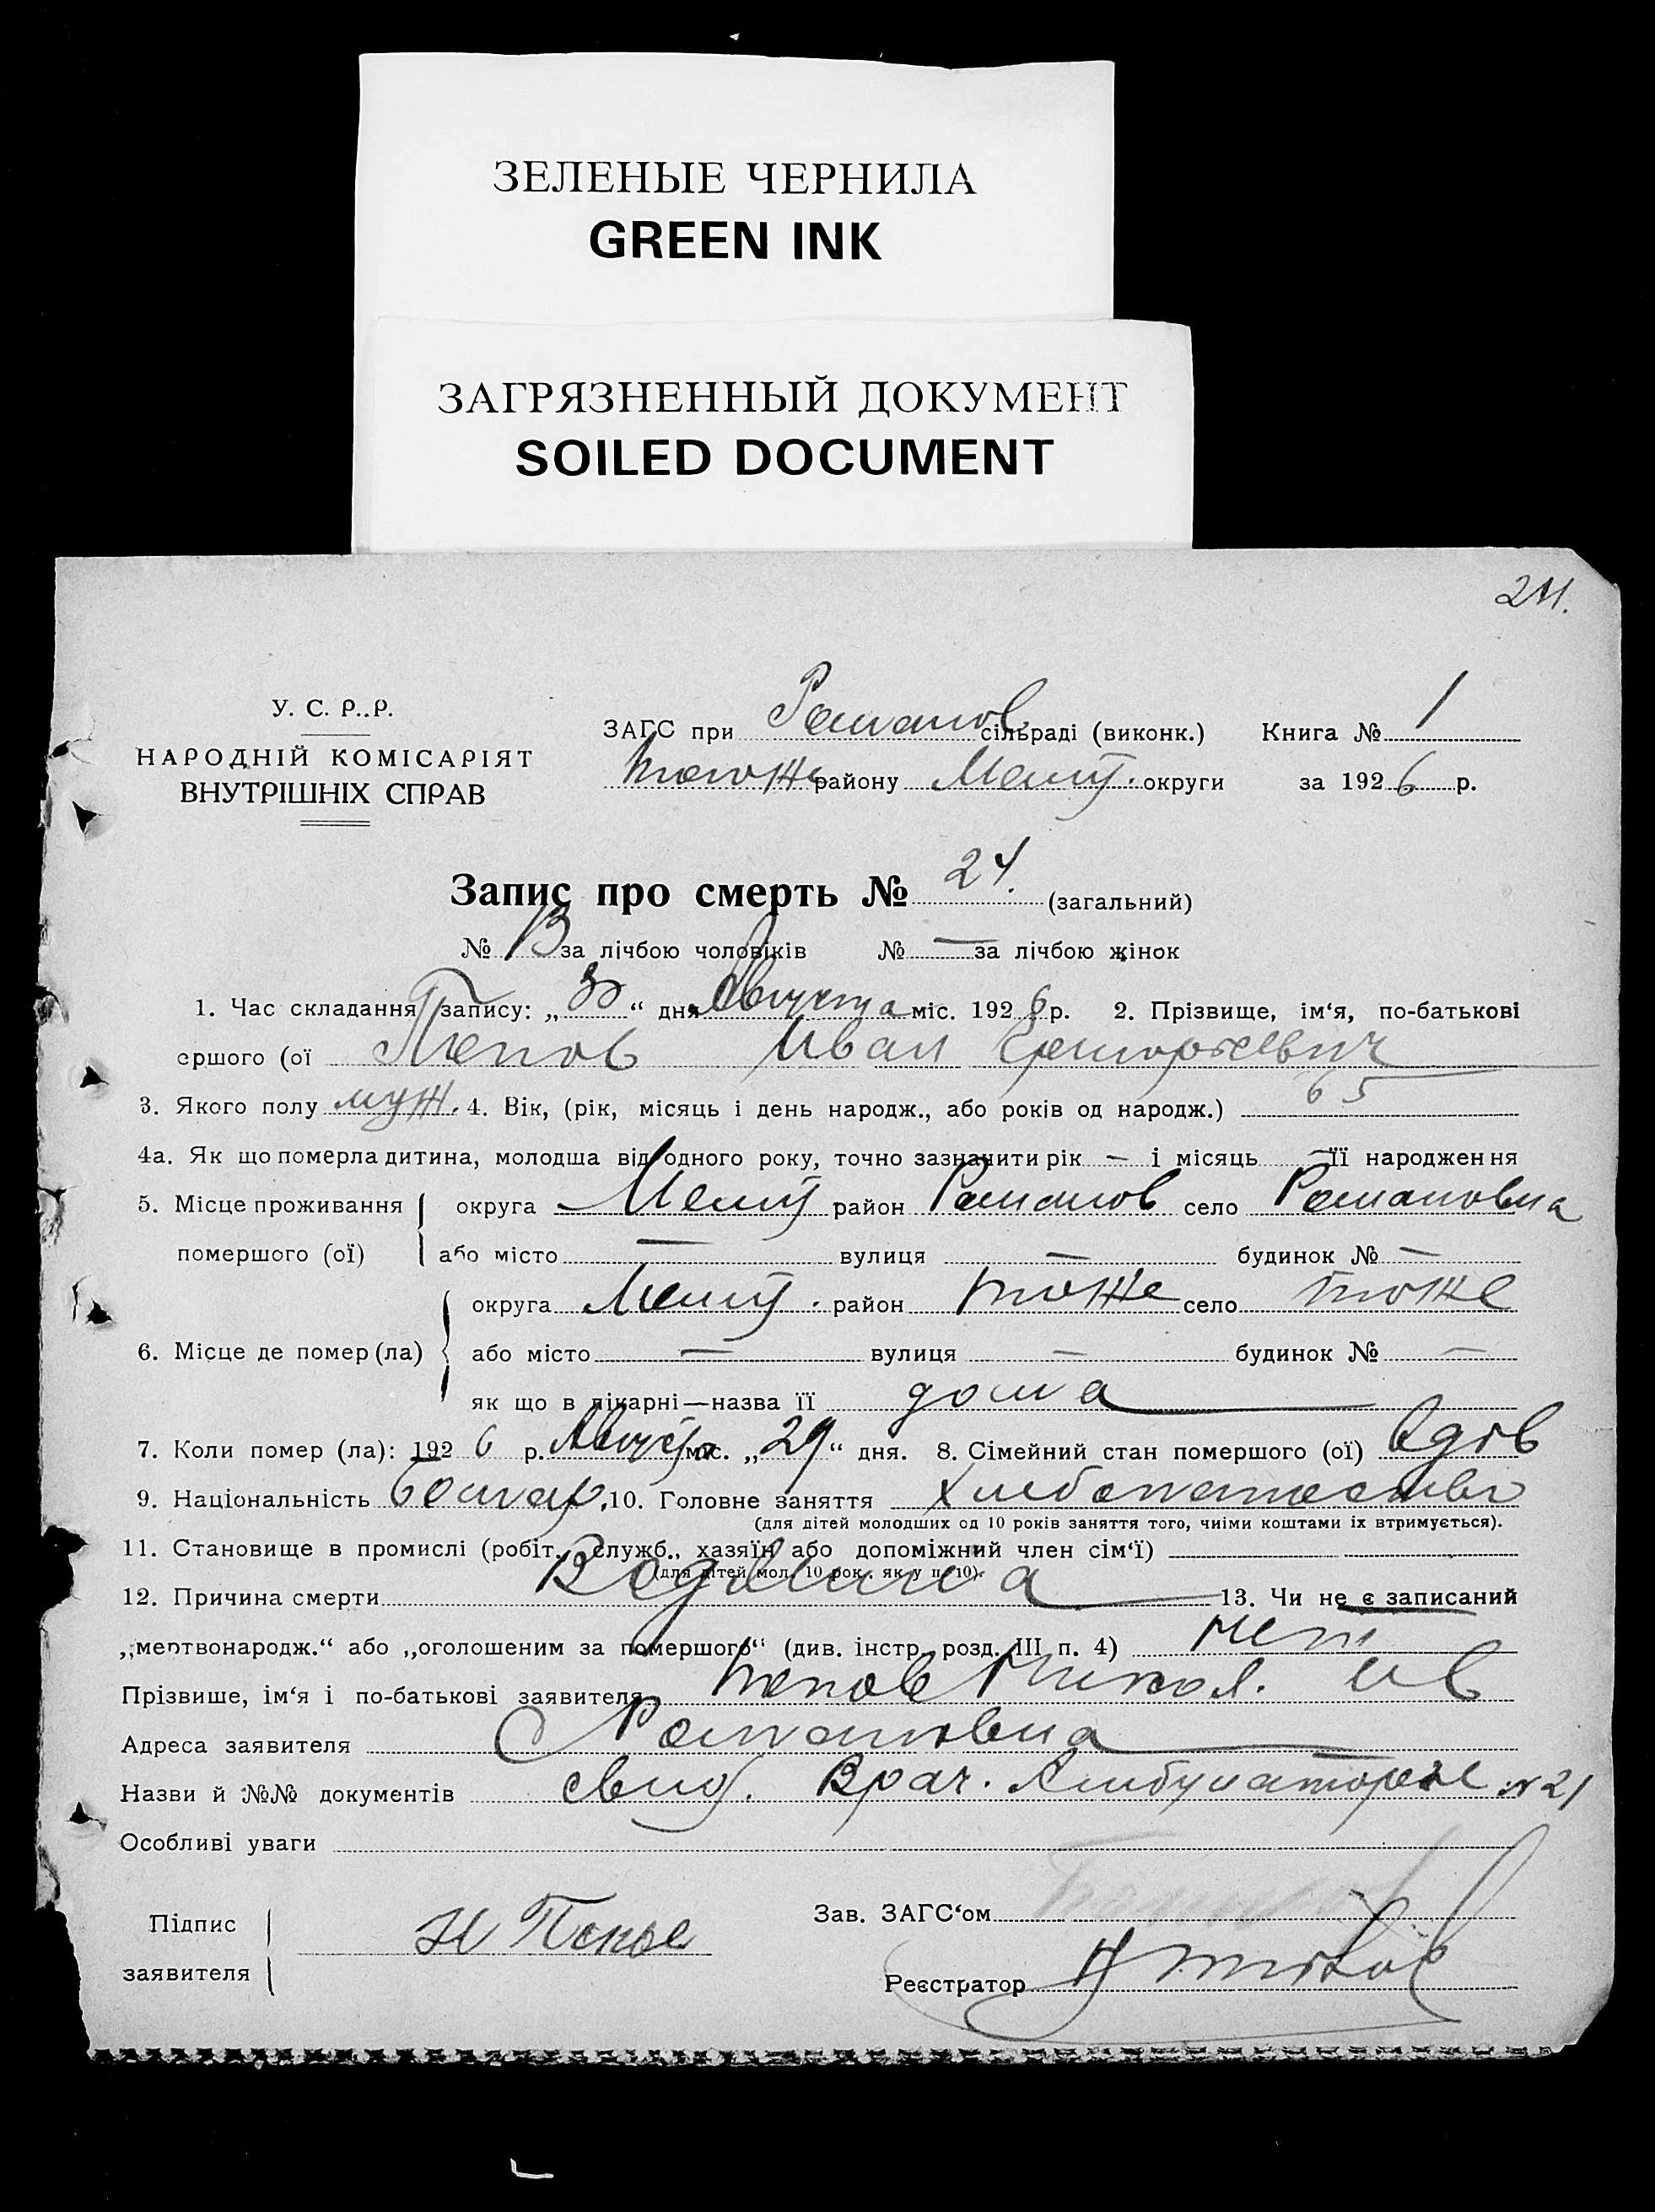 ЗЕЛЕНЫЕ ЧЕРНИЛА
GREEN INK
ЗАГРЯЗНЕННЫЙ ДОКУМЕНТ
SOILED DOCUMENT
У. С. Р..Р.
НАРОДНІЙ КОМІСАРІЯТ
ВНУТРІШНІХ СПРАВ
ЗАГС при Романов. сільраді (виконк.) Книга № 1
тогоже району Мелит. округи за 1926 р.
Запис про смерть № 24. (загальний)
№ 13 за лічбою чоловіків № — за лічбою жінок
1. Час складання запису: „30“ дня Августа міс. 1926 р. 2. Прізвище, ім‘я, по-батькові
ершого (ої Попов Иван Григорьевич
3. Якого полу муж. 4. Вік, (рік, місяць і день народж., або років од народж.) 65
4а. Як що померла дитина, молодша від одного року, точно зазначити рік — і місяць — її народження
5. Місце проживання округа Мелит район Романов село Романовка
помершого (ої) або місто — вулиця — будинок № —
округа Мелит. район тоже село тоже
6. Місце де помер (ла) або місто — вулиця — будинок № —
як що в лікарні—назва її дома
7. Коли помер (ла): 1926 р. Августа міс. „29“ дня. 8. Сімейний стан помершого (ої) вдов
9. Національність болгар. 10. Головне заняття хлебопашество
(для дітей молодших од 10 років заняття того, чиїми коштами їх втримується).
11. Становище в промислі (робіт., служб., хазяїн або допоміжний член сім‘ї)
(для дітей мол. 10 рок. як у п. 10).
12. Причина смерти Водянка 13. Чи не є записаний
„мертвонародж.“ або „оголошеним за помершого“ (див. інстр. розд. III п. 4) нет
Прізвище, ім‘я і по-батькові заявителя Попов Никол. Ив
Адреса заявителя С Романовка
Назви й №№ документів свид. Врач. Амбулатории №21
Особливі уваги
Підпис
заявителя Н Попов
Зав. ЗАГС‘ом
Реєстратор